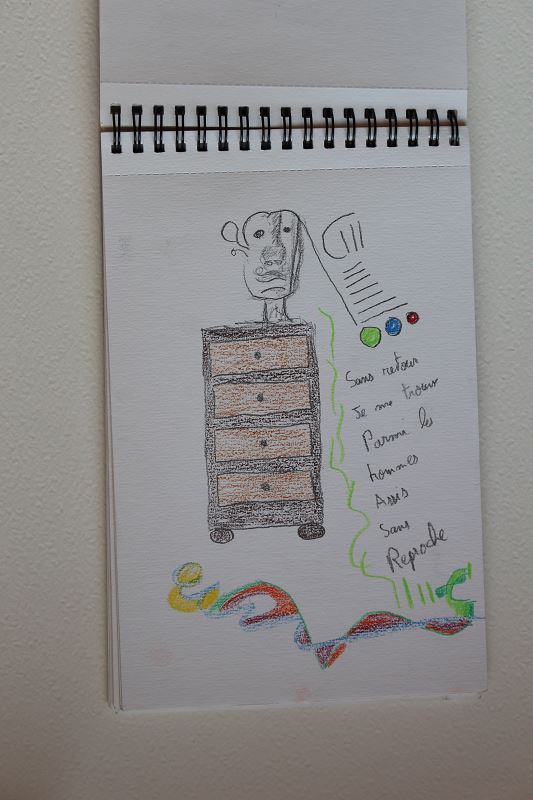 Sans retour
Je me trouve
Parmi les
hommes
Assis
Sans
Reproche